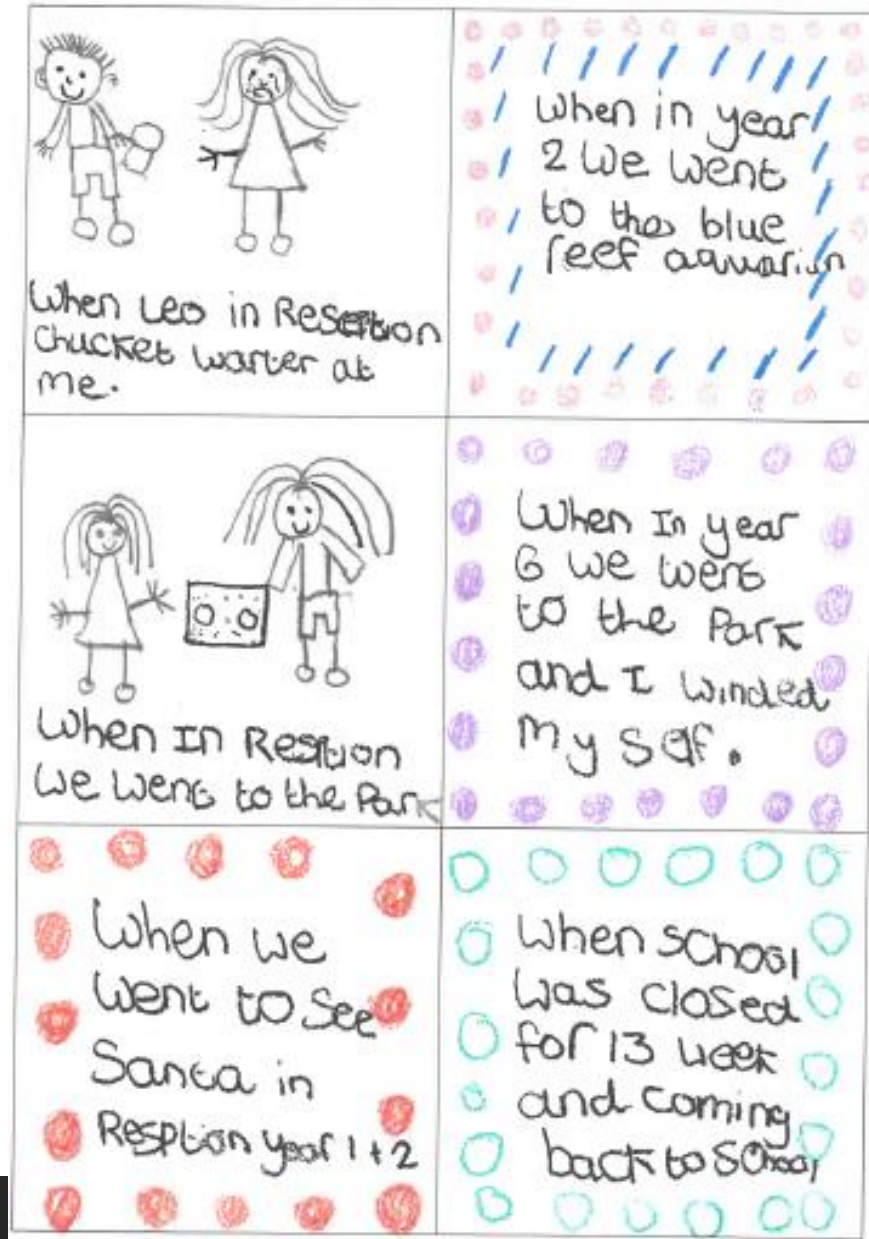 When Leo in Resertion
Chucket warter at
me.
When in year
2 we went
to the blue
reef aquarium
When In Resption
we went to the Park
When In year
6 we went
to the Park
and I winded
my self.
When we
went to See
Santa in
Resption year 1+2
When school
was closed
for 13 week
and coming
back to school